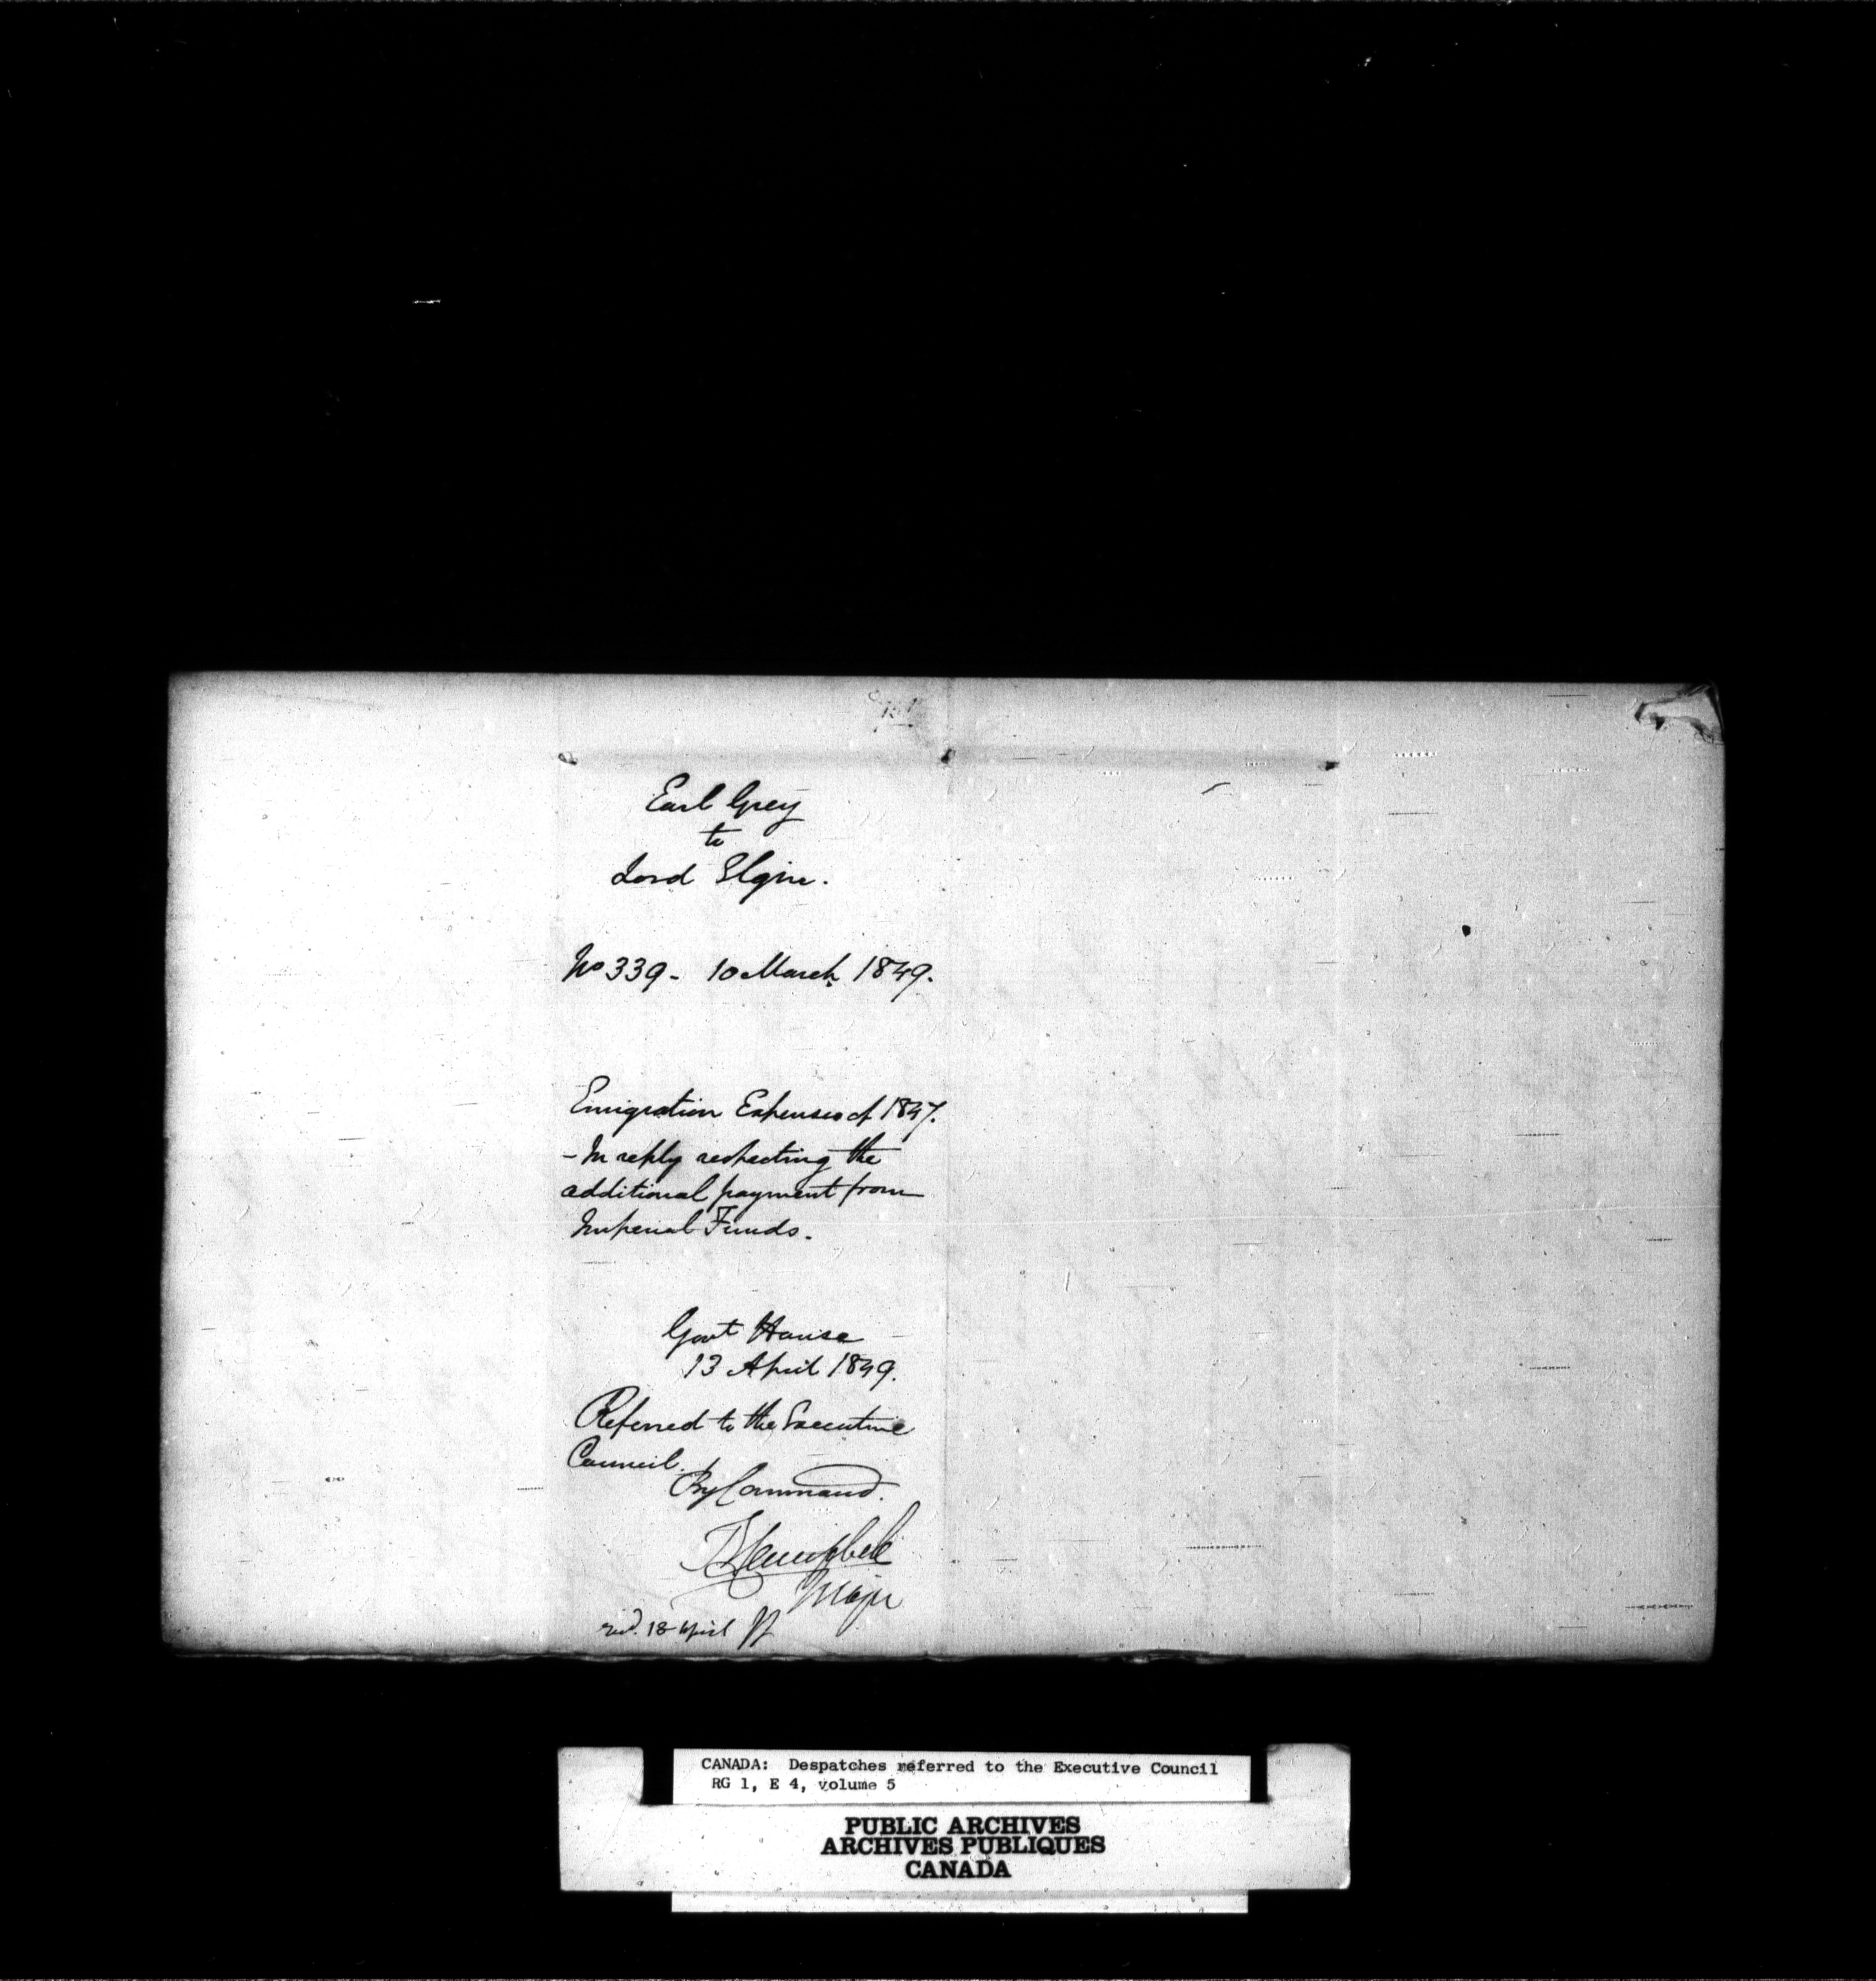 Earl Grey
to
Lord Elgin.
No 339 - 10 March 1849.
Emigration Expenses of 1847.
- In reply respecting the
additional payment from
Imperial Funds.
Govt House
13 April 1849.
Referred to the Executive
Council.
By Command.
Campbell
Major
recd. 18 April
CANADA: Despatches referred to the Executive Council
RG 1, E 4, volume 5
PUBLIC ARCHIVES
ARCHIVES PUBLIQUES
CANADA